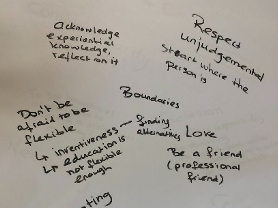 Acknowledge
experiential
knowledge,
reflect on it
Respect
unjudgemental
Start where the
person is
Boundaries
Don't be
afraid to be
flexible
↳ inventiveness — finding
alternatives
↳ education is
not flexible
enough
Love
Be a friend
(professional
friend)